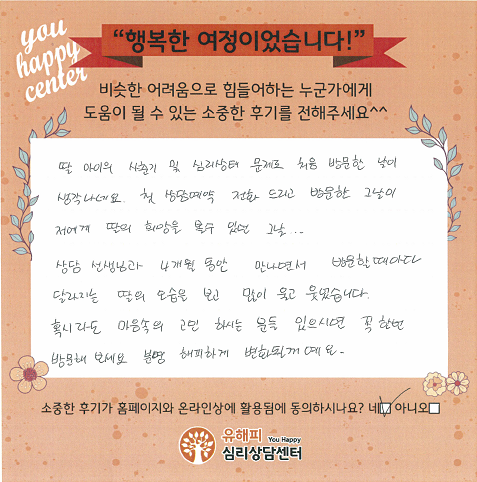 you
happy
center
“행복한 여정이었습니다!”
비슷한 어려움으로 힘들어하는 누군가에게
도움이 될 수 있는 소중한 후기를 전해주세요^^
딸 아이의 사춘기 및 심리상태 문제로 처음 방문한 날이
생각나네요. 첫 상담예약 전화 드리고 방문한 그날이
저에게 딸의 희망을 볼수 있었던 그날...
상담 선생님과 4개월 동안 만나면서 방문할때마다
달라지는 딸의 모습을 보고 많이 울고 웃었습니다.
혹시라도 마음속의 고민 하시는 분들 있으시면 꼭 한번
방문해 보세요 분명 해피하게 변화될꺼예요-
소중한 후기가 홈페이지와 온라인상에 활용됨에 동의하시나요? 네☑ 아니오☐
유해피 You Happy
심리상담센터